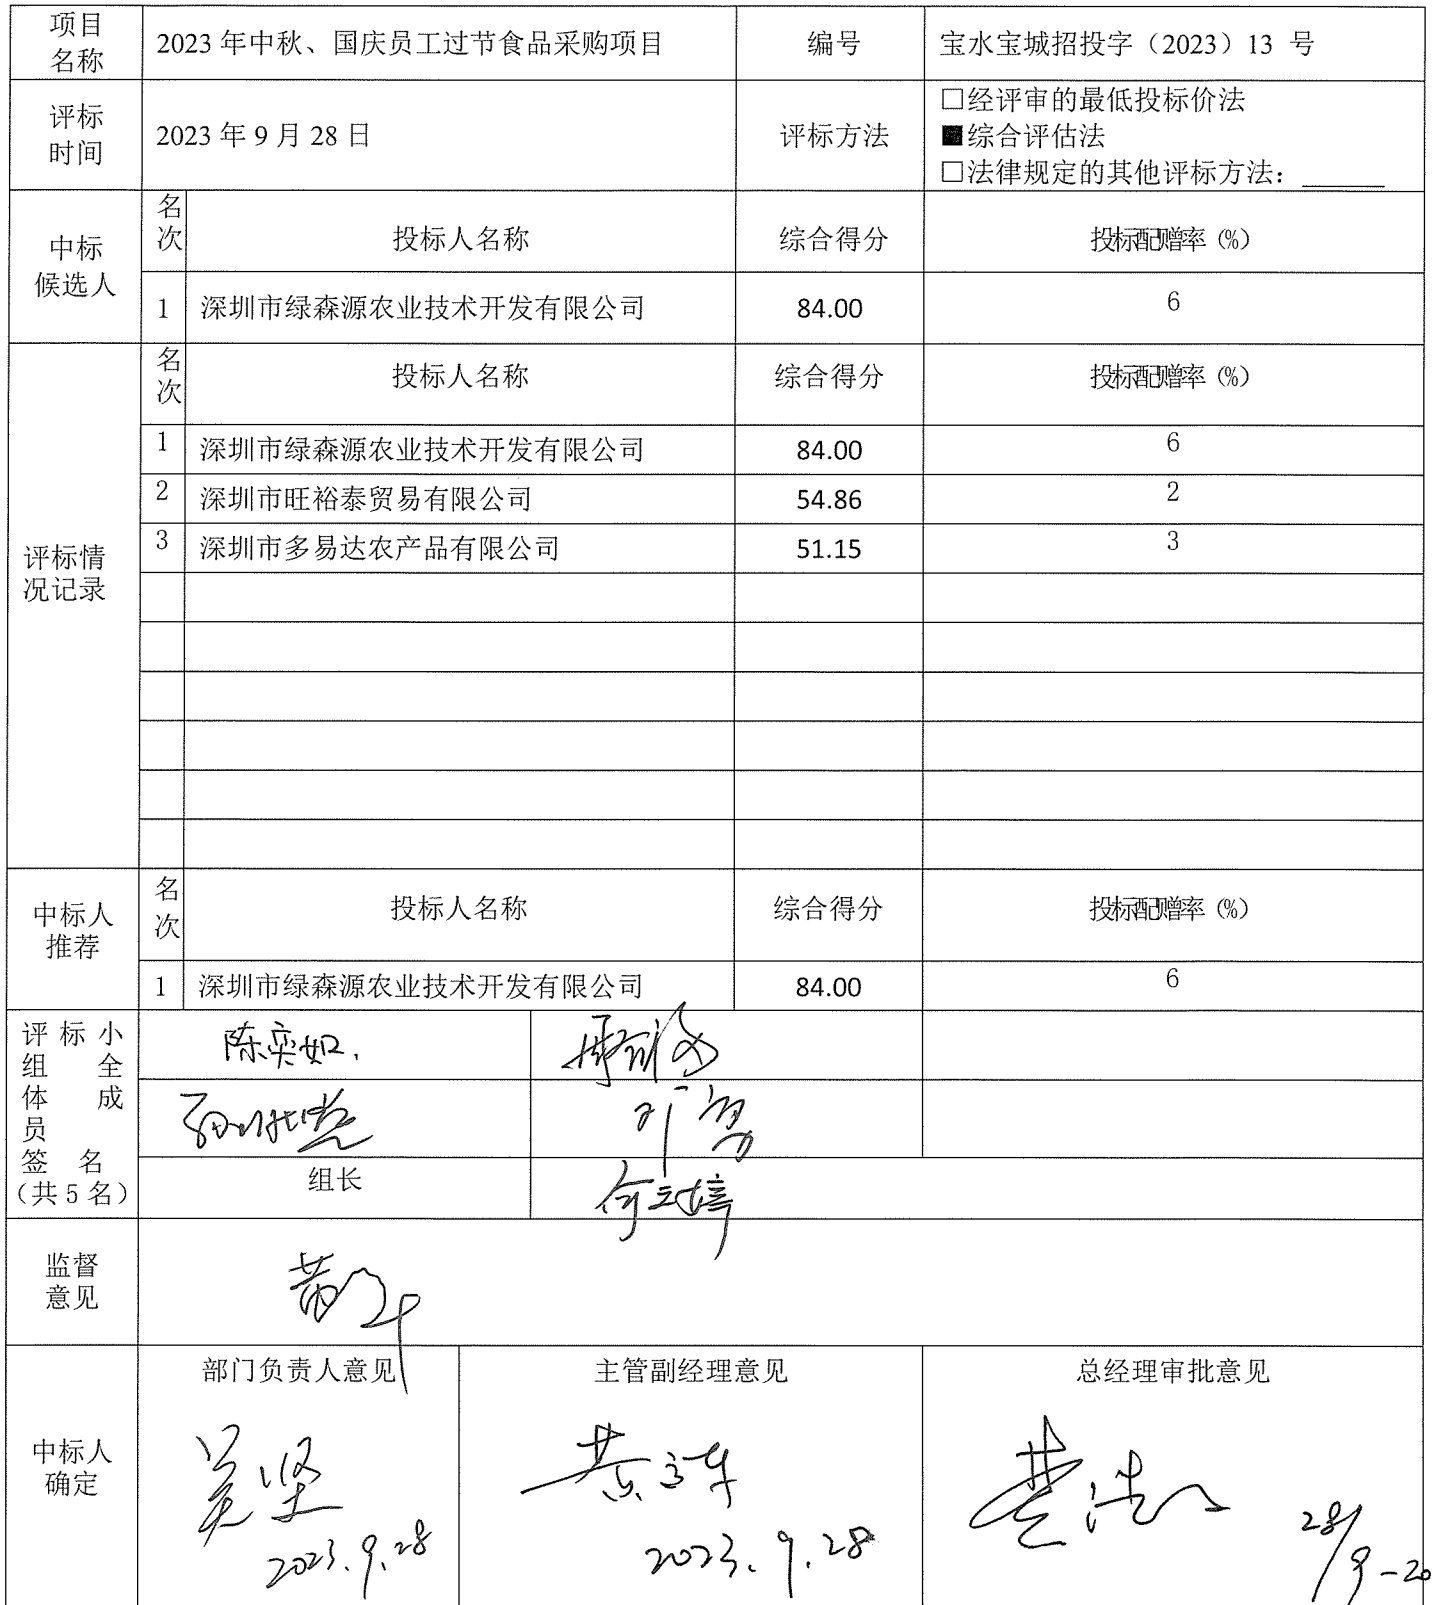 项目名称 2023 年中秋、国庆员工过节食品采购项目 编号 宝水宝城招投字（2023）13 号
评标时间 2023 年 9 月 28 日 评标方法 □经评审的最低投标价法
■综合评估法
□法律规定的其他评标方法：______
中标候选人 名次 投标人名称 综合得分 投标配赠率（%）
1 深圳市绿森源农业技术开发有限公司 84.00 6
评标情况记录 名次 投标人名称 综合得分 投标配赠率（%）
1 深圳市绿森源农业技术开发有限公司 84.00 6
2 深圳市旺裕泰贸易有限公司 54.86 2
3 深圳市多易达农产品有限公司 51.15 3
中标人推荐 名次 投标人名称 综合得分 投标配赠率（%）
1 深圳市绿森源农业技术开发有限公司 84.00 6
评标小组全体成员签名（共 5 名）
陈奕如
组长
监督意见
中标人确定 部门负责人意见 主管副经理意见 总经理审批意见
2023.9.28 2023.9.28 28/9-20